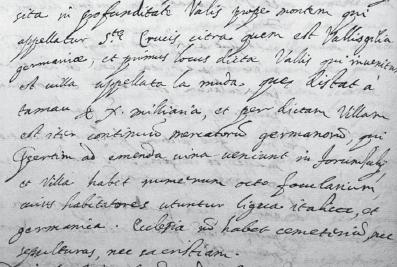 sita in profunditate Valis prope montem qui
appellatur S.te Crucis, citra quem est Vallisgilia
germaniæ, et primus locus dicta Valis qui invenitur
est villa appellata la muda, ques distat a
tamau X. miliaria, et per dictam Villam
est iter continuio mercatorũ germanorũ, qui
ad emenda vina veniunt in forumJulij
et Villa habet numerum octo focularium,
cuius habitatores utuntur ligua italica, et
germanica. Ecclesia nõ habet cemeteriũ, nec
sepulturas, nec sacristiam.